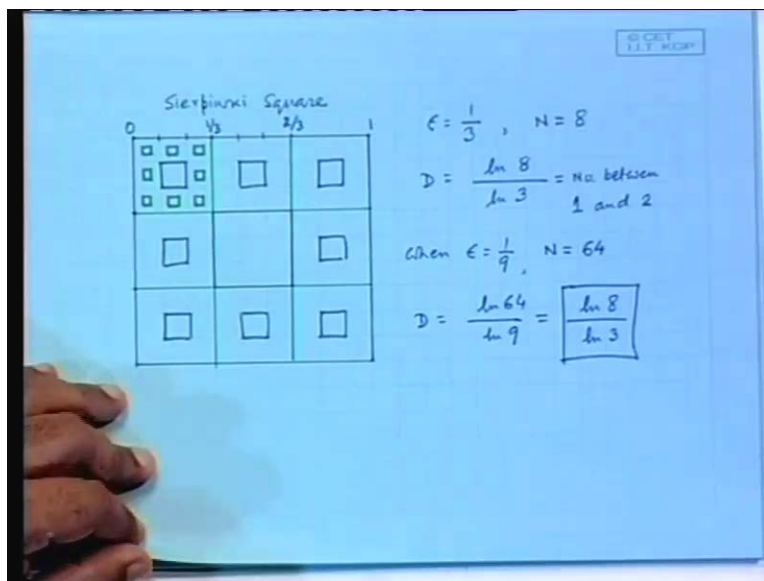 © CET
I.I.T KGP
Sierpinski Square
0 1/3 2/3 1
ϵ = 1/3 , N = 8
D = ln 8 / ln 3 = No. between
1 and 2
when ϵ = 1/9, N = 64
D = ln 64 / ln 9 = ln 8 / ln 3